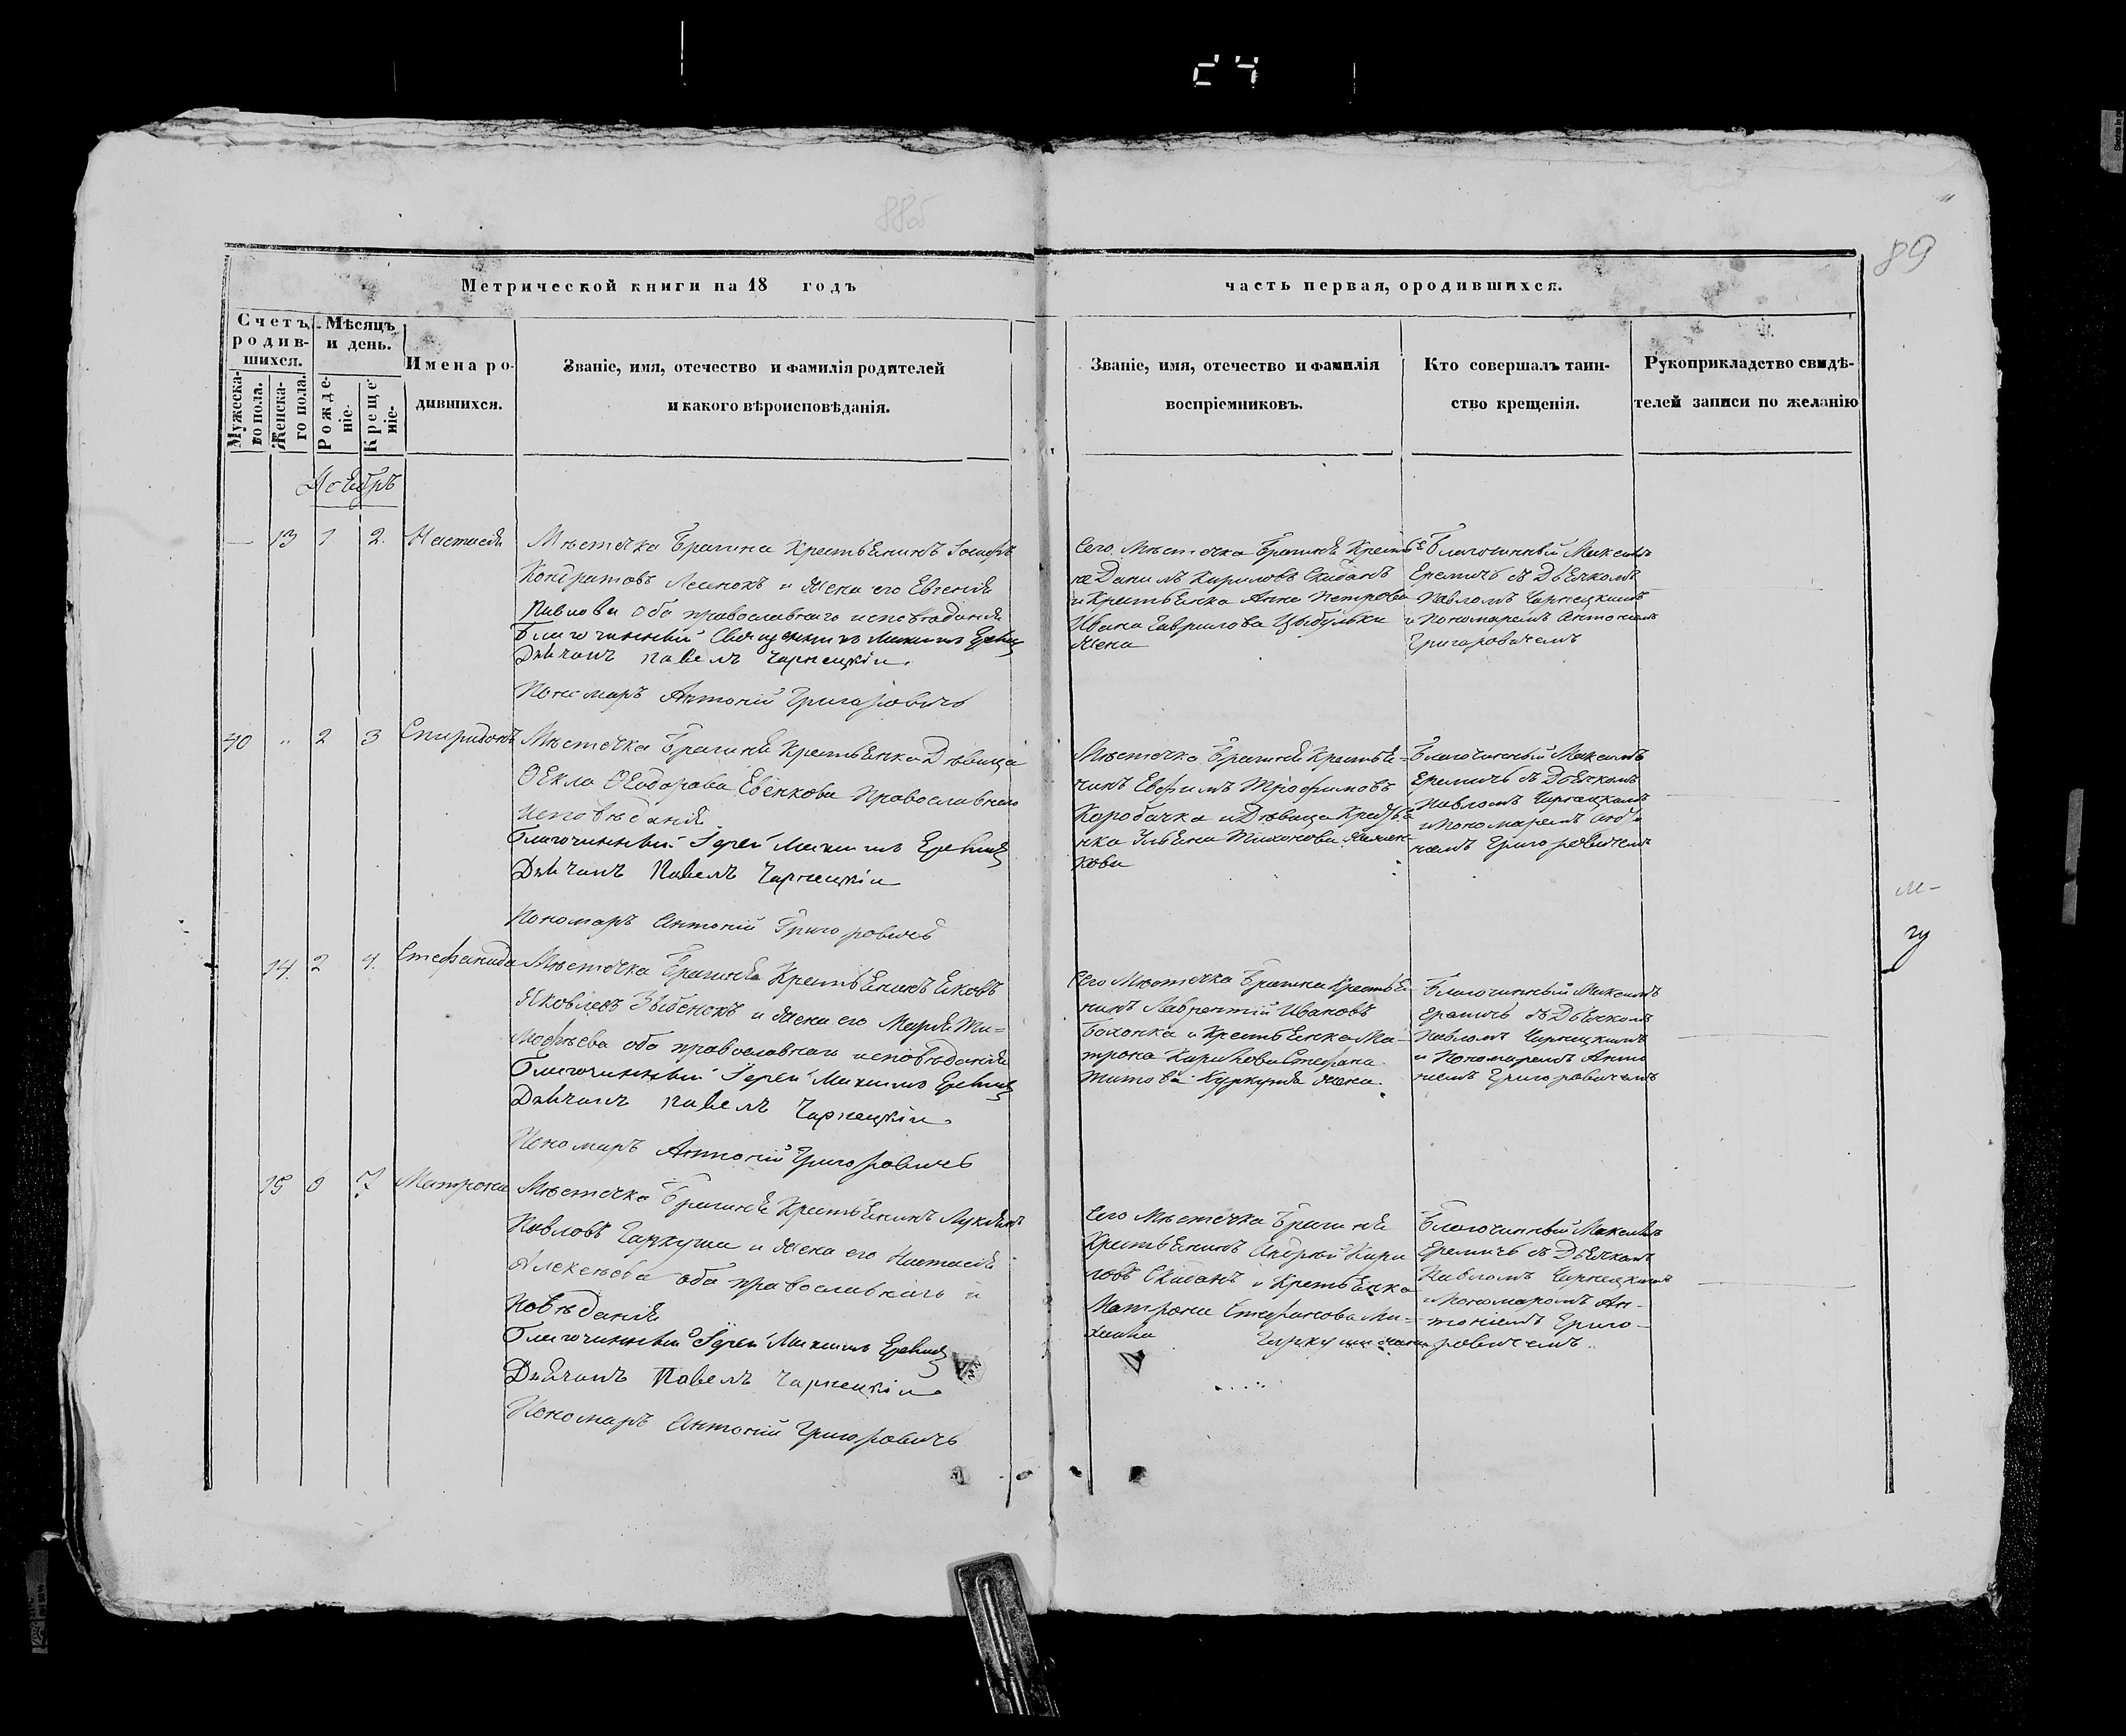 88об
89
Метрической книги на 18 годъ
часть первая, ородившихся.
Счетъ родив-шихся.
Мѣсяцъ и день.
Имена ро-
дившихся.
Званіе, имя, отечество и фамилія родителей
и какого вѣроисповѣданія.
Званіе, имя, отечество и фамилія
воспріемниковъ.
Кто совершалъ таин-
ство крещенія.
Рукоприкладство свидѣ-
телей записи по желанію
Мужеска-го пола.
Женска-го пола.
Рожде-ніе-
Креще-ніе-
13 1 2. Настасія
Мѣстечка Брагина Крестьянинъ Іосифъ
Кондратовъ Лесинокъ и жена его Евгенія
Павлова оба православнаго исповѣданія
Благочинный Священникъ Максимъ Еремич
Дьячокъ Павелъ Чарнецкій
Пономаръ Антоній Григоровичъ
Сего Мѣстечка Брагина Крестья
Данилъ Кириловъ Скибанъ
и Крестьянка Анна Петрова
Ивана Гаврилова Цыбульки
жена
Благочинный Максимъ
Еремичъ съ Дьячкомъ
Павломъ Чарнецкимъ
и Пономаремъ Антоніемъ
Григоровичемъ
40 " 2 3 Спиридонъ
Мѣстечка Брагиня Крестьянка Дѣвица
Ѳекла Ѳеодорова Евенкова Православнаго
исповѣданія
Благочинный Іерей Максимъ Еремич
Дьячокъ Павелъ Чарнецкій
Пономаръ Антоній Григоровичъ
Мѣстечка Брагиня Крестья-
нинъ Ефимъ Трофимовъ
Коробачка и Дѣвица Крестья
нка Ульяна Тихонова
кова
Благочинный Максимъ
Еремичъ съ Дьячкомъ
Павломъ Чарнецкимъ
и Пономаремъ Анто
ніемъ Григоровичемъ
14. 2 4. Стефанида
Мѣстечка Брагиня Крестьянинъ Яковъ
Яковлевъ Зыбенокъ и жена его Марія Ти-
мофѣева оба православнаго исповѣданія
Благочинный Іерей Максимъ Еремич
Дьячокъ Павелъ Чарнецкій
Пономаръ Антоній Григоровичъ
Сего Мѣстечка Брагина Крестья
нинъ Лаврентій Ивановъ
Боханка и Крестьянка Ма-
трона Карпова Стефана
Титова Куркуня жена.
Благочинный Максимъ
Еремичъ съ Дьячкомъ
Павломъ Чарнецкимъ
и Пономаремъ Анто
ніемъ Григоровичемъ
15 6 7 Матрона
Мѣстечка Брагиня Крестьянинъ Лукіянъ
Павловъ Гаркуша и жена его Настасія
Алексѣева оба православнаго и
повѣданія
Благочинный Іерей Максимъ Еремич
Дьячокъ Павелъ Чарнецкій
Пономаръ Антоній Григоровичъ
Сего Мѣстечка Брагиня
Крестьянинъ Андрей Кири
ловъ Скибанъ и Крестьянка
Матрона Стефанова Ми-
хаила Гаркуши жена
Благочинный Максимъ
Еремичъ съ Дьячкомъ
Павломъ Чарнецкимъ
и Пономаромъ Ан-
тоніемъ Григо-
ровичемъ.